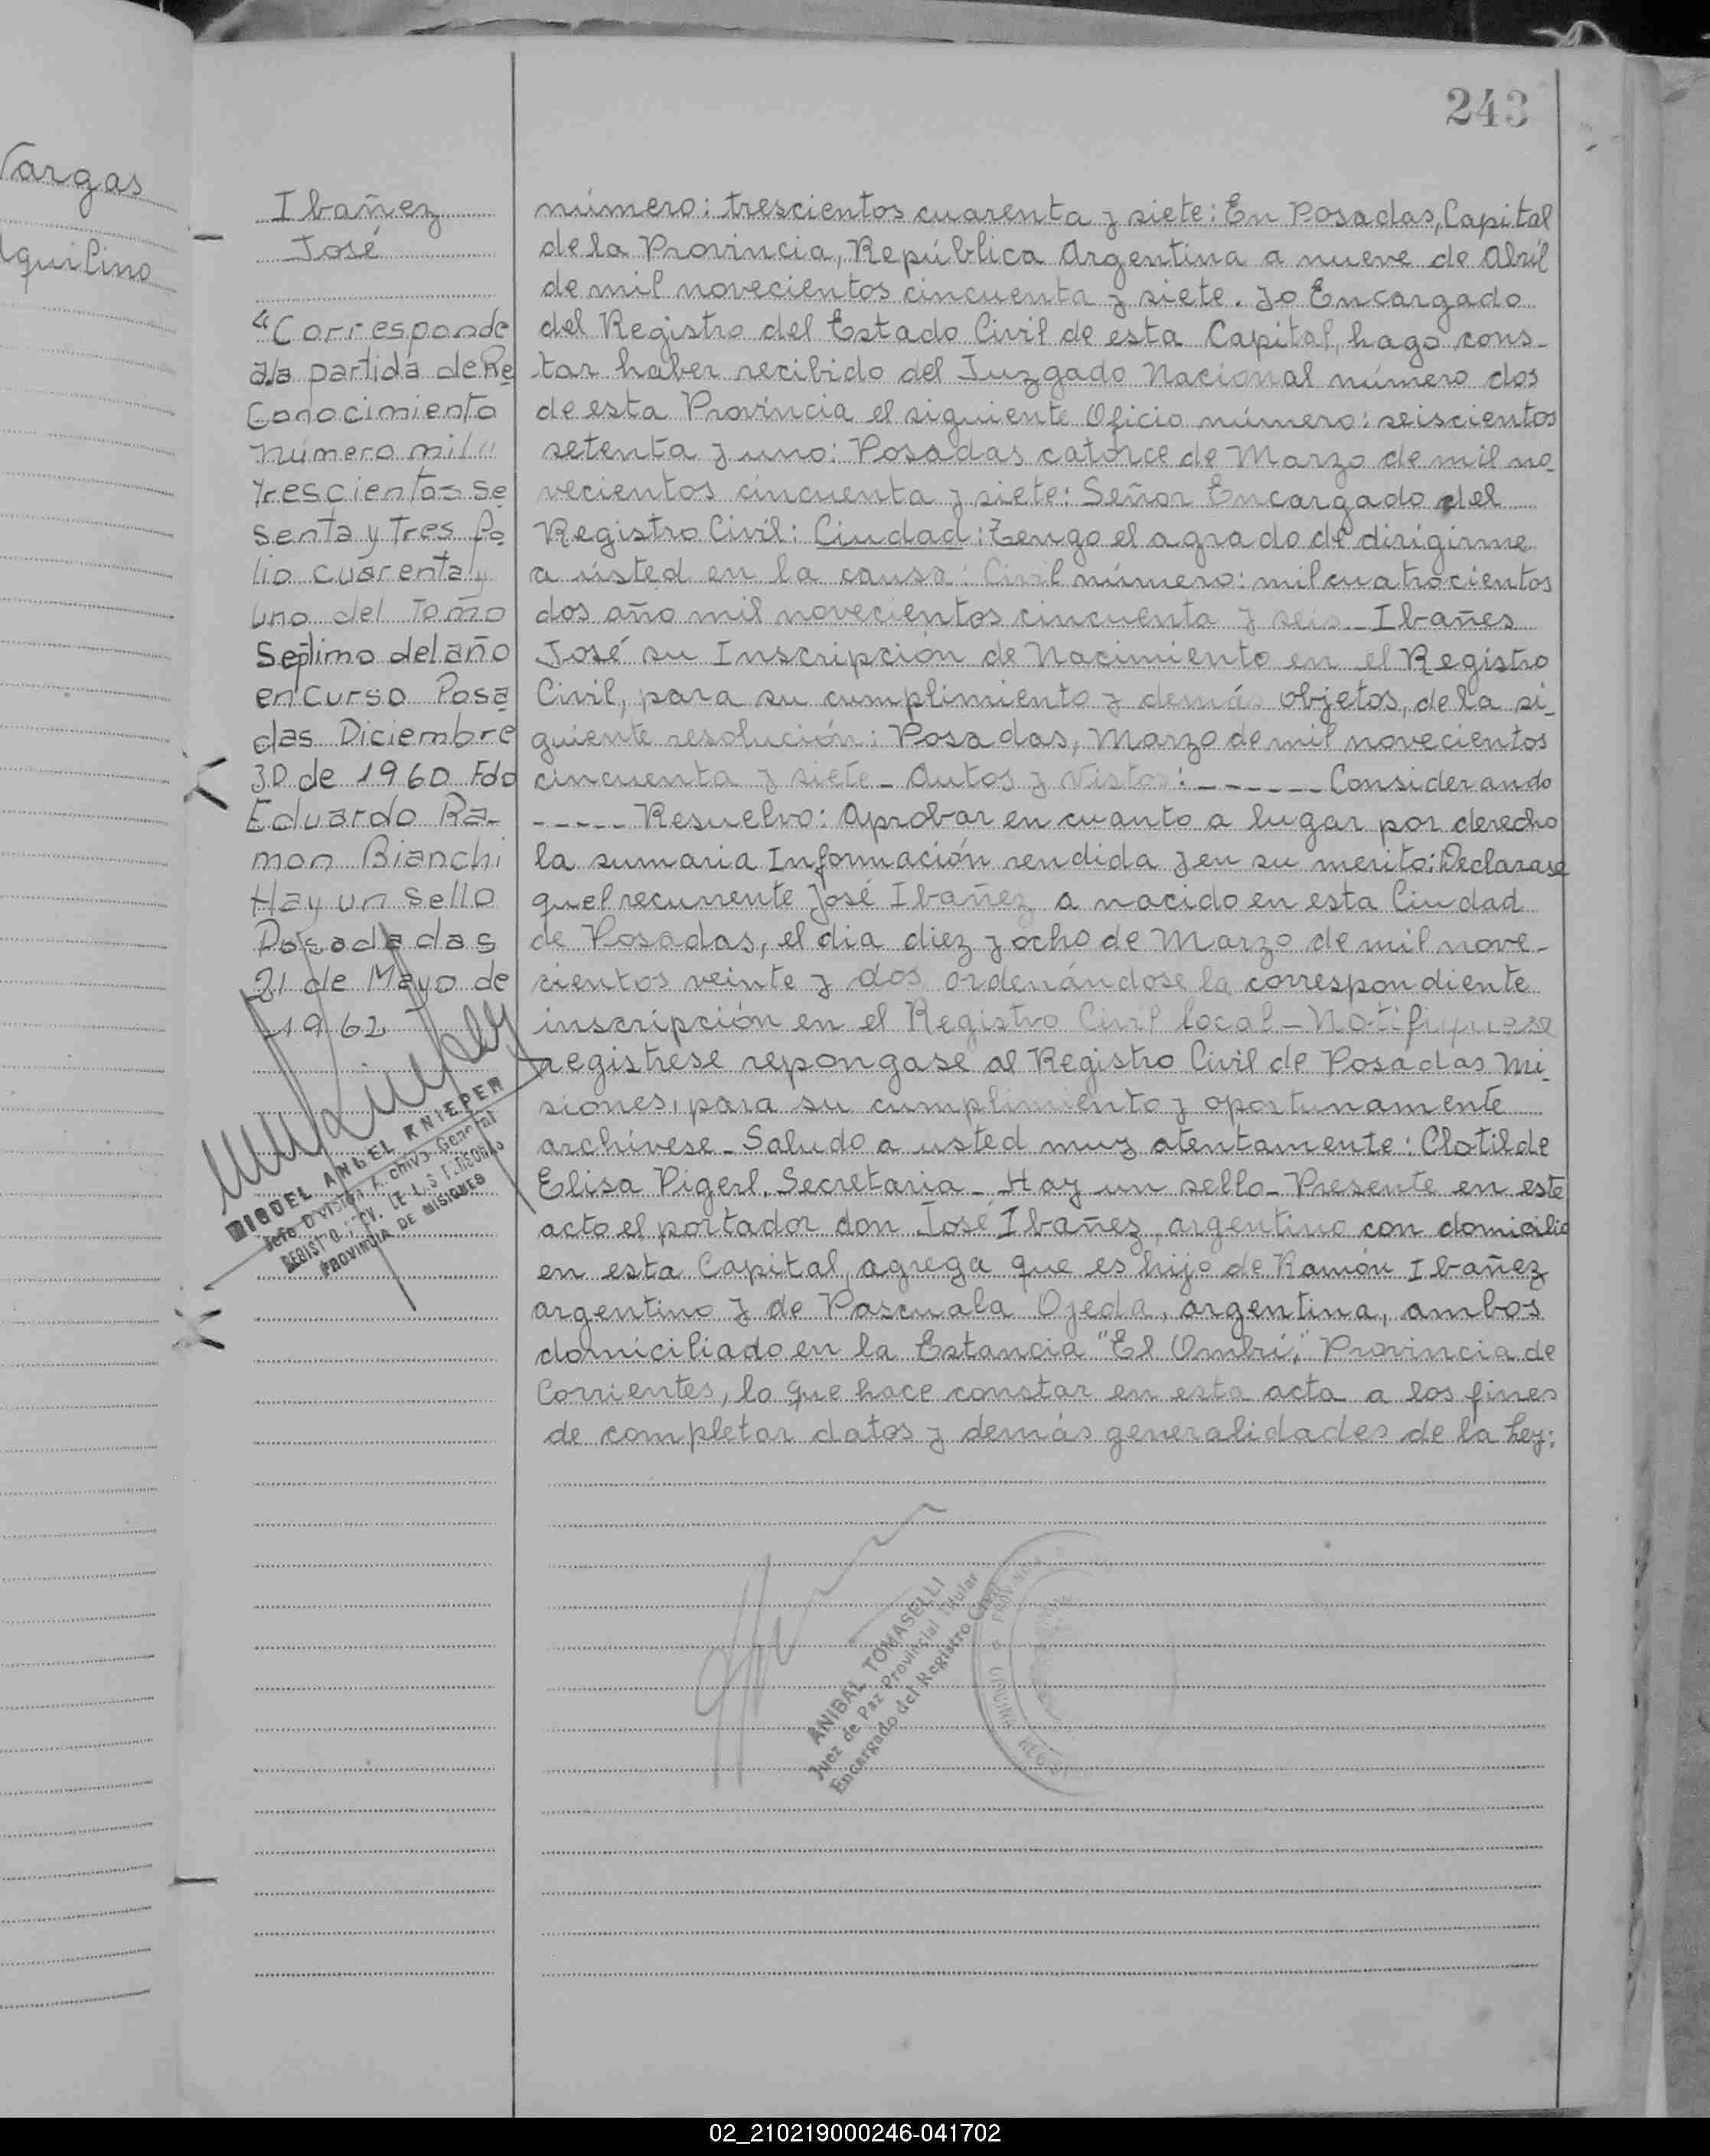 243
Vargas
Aquilino
Ibañez
José
"Corresponde
a la partida de Re
Conocimiento
número mil "
Trescientos se
senta y Tres Fo
lio cuarenta y
uno del Tomo
Septimo del año
en curso Posa
das Diciembre
30 de 1960 Fdo
Eduardo Ra-
mon Bianchi
Hay un sello
Posadadas
21 de Mayo de
1962
MIGUEL ANGEL KNIEPER
Jefe División Archivo General
PROVINCIA DE MISIONES
número: trescientos cuarenta y siete: En Posadas, Capital
de la Provincia, República Argentina a nueve de Abril
de mil novecientos cincuenta y siete. Yo Encargado
del Registro del Estado Civil de esta Capital, hago cons-
tar haber recibido del Juzgado Nacional número dos
de esta Provincia el siguiente Oficio número: seiscientos
setenta y uno: Posadas catorce de Marzo de mil no-
vecientos cincuenta y siete: Señor Encargado del
Registro Civil: Ciudad: Tengo el agrado de dirigirme
a usted en la causa: Civil número: mil cuatrocientos
dos año mil novecientos cincuenta y seis - Ibañes
José su Inscripción de Nacimiento en el Registro
Civil, para su cumplimiento y demás objetos, de la si-
guiente resolución: Posadas, Marzo de mil novecientos
cincuenta y siete - Autos y Vistos: - - - - - - Considerando
- - - - - Resuelvo: Aprobar en cuanto a lugar por derecho
la sumaria Información rendida y en su merito: Declarase
quel recurrente José Ibañez a nacido en esta Ciudad
de Posadas, el dia diez y ocho de Marzo de mil nove-
cientos veinte y dos ordenándose la correspondiente
inscripción en el Registro Civil local - Notifiquese
registrese repongase al Registro Civil de Posadas Mi-
siones, para su cumplimiento y oportunamente
archívese - Saludo a usted muy atentamente: Clotilde
Elisa Pigerl. Secretaria - Hay un sello - Presente en este
acto el portador don José Ibañez, argentino con domicilio
en esta Capital, agrega que es hijo de Ramón Ibañez
argentino y de Pascuala Ojeda, argentina, ambos
domiciliado en la Estancia "El Ombú," Provincia de
Corrientes, lo que hace constar en esta acta a los fines
de completar datos y demás generalidades de la Ley:
ANIBAL TOMASELLI
Juez de Paz Provincial Titular
Encargado del Registro Civil
02_210219000246-041702